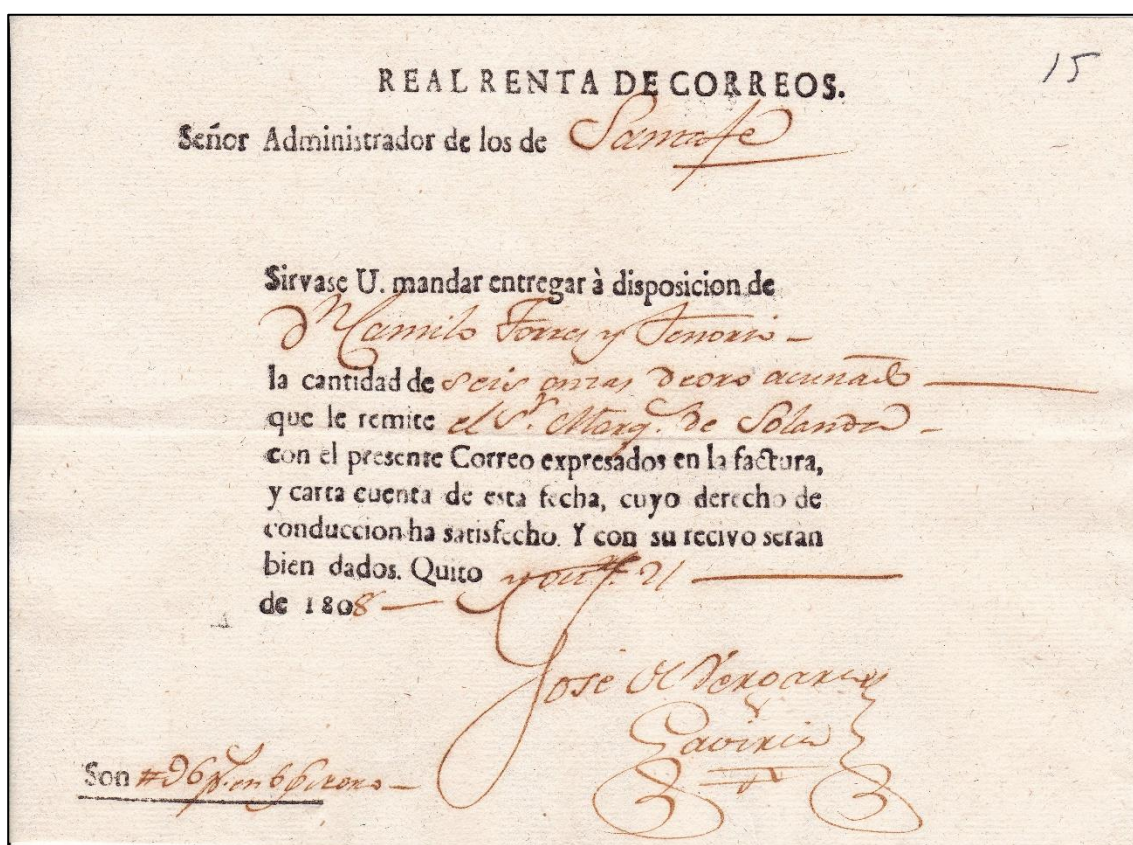 15
REAL RENTA DE CORREOS.
Señor Administrador de los de Santafe
Sirvase U. mandar entregar à disposicion de
Dn Camilo Torres y Tenorio -
la cantidad de seis onzas de oro acuñado
que le remite el Sr. Marqs. de Solanda -
con el presente Correo expresados en la factura,
y carta cuenta de esta fecha, cuyo derecho de
conduccion ha satisfecho. Y con su recivo serán
bien dados. Quito 21
de 1808 -
José de Vergara
Gaviria
Son #96 ps. en 6